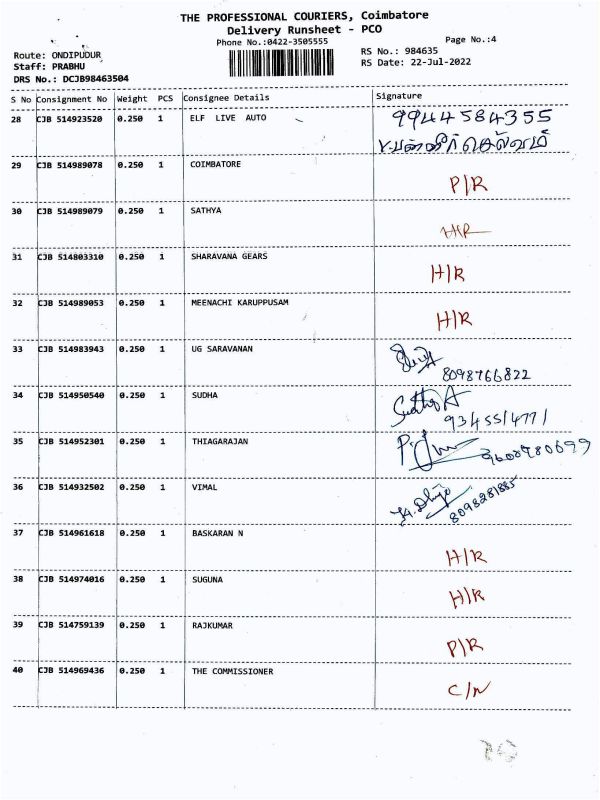 THE PROFESSIONAL COURIERS, Coimbatore
Delivery Runsheet - PCO
Phone No.:0422-3505555 Page No.:4
Route: ONDIPUDUR RS No.: 984635
Staff: PRABHU RS Date: 22-Jul-2022
DRS No.: DCJB98463504
S No Consignment No Weight PCS Consignee Details Signature
28 CJB 514923520 0.250 1 ELF LIVE AUTO 9944584355
V.பன்னீர் செல்வம்
29 CJB 514989078 0.250 1 COIMBATORE P/R
30 CJB 514989079 0.250 1 SATHYA H/R
31 CJB 514803310 0.250 1 SHARAVANA GEARS H/R
32 CJB 514989053 0.250 1 MEENACHI KARUPPUSAM H/R
33 CJB 514983943 0.250 1 UG SARAVANAN
8098766822
34 CJB 514950540 0.250 1 SUDHA Sudha A
9345514771
35 CJB 514952301 0.250 1 THIAGARAJAN 9600980699
36 CJB 514932502 0.250 1 VIMAL
8098281885
37 CJB 514961618 0.250 1 BASKARAN N H/R
38 CJB 514974016 0.250 1 SUGUNA H/R
39 CJB 514759139 0.250 1 RAJKUMAR P/R
40 CJB 514969436 0.250 1 THE COMMISSIONER C/N